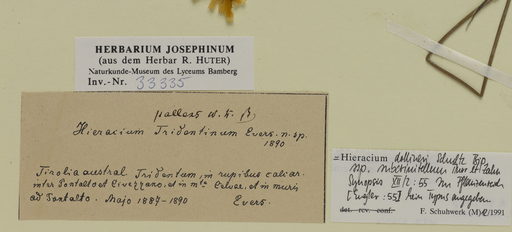 HERBARIUM JOSEPHINUM
(aus dem Herbar R. HUTER)
Naturkunde-Museum des Lyceums Bamberg
Inv.-Nr. 33335
pallens W. K. β)
Hieracium Tridentinum Evers. n. sp.
1890
Tirolia austral Tridentum, in rupibus calcar.
inter Pontalto et Civezzano, et in mte Celva, et in muris
ad Pontalto. Majo 1887-1890
Evers.
Hieracium dollineri Schultz Bip.
ssp. Murr et Zahn
Synopsis XII/2 : 55 Im Pflanzenreich
[Engler : 55] kein Typus angegeben.
det. rev. conf. F. Schuhwerk (M) /1991